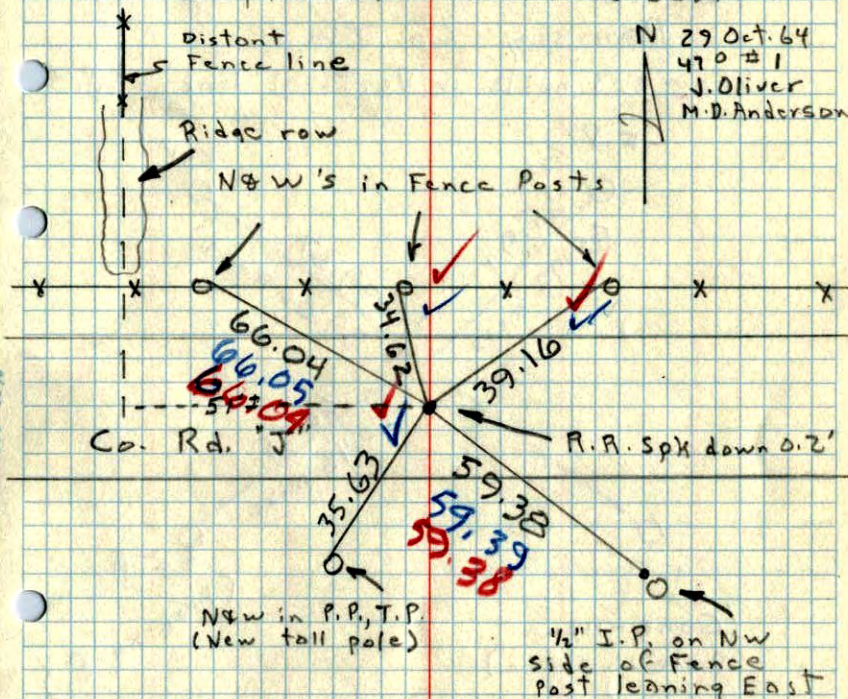 Distant
Fence line
N 29 Oct. 64
47° # 1
J. Oliver
M.D. Anderson
Ridge row
N&W's in Fence Posts
66.04
66.05
66.04
34.62
39.16
Co. Rd. "J"
R.R. Spk down 0.2'
35.63
59.38
59.39
59.38
N&W in P.P., T.P.
(New tall pole)
1/2" I.P. on NW
side of Fence
Post leaning East